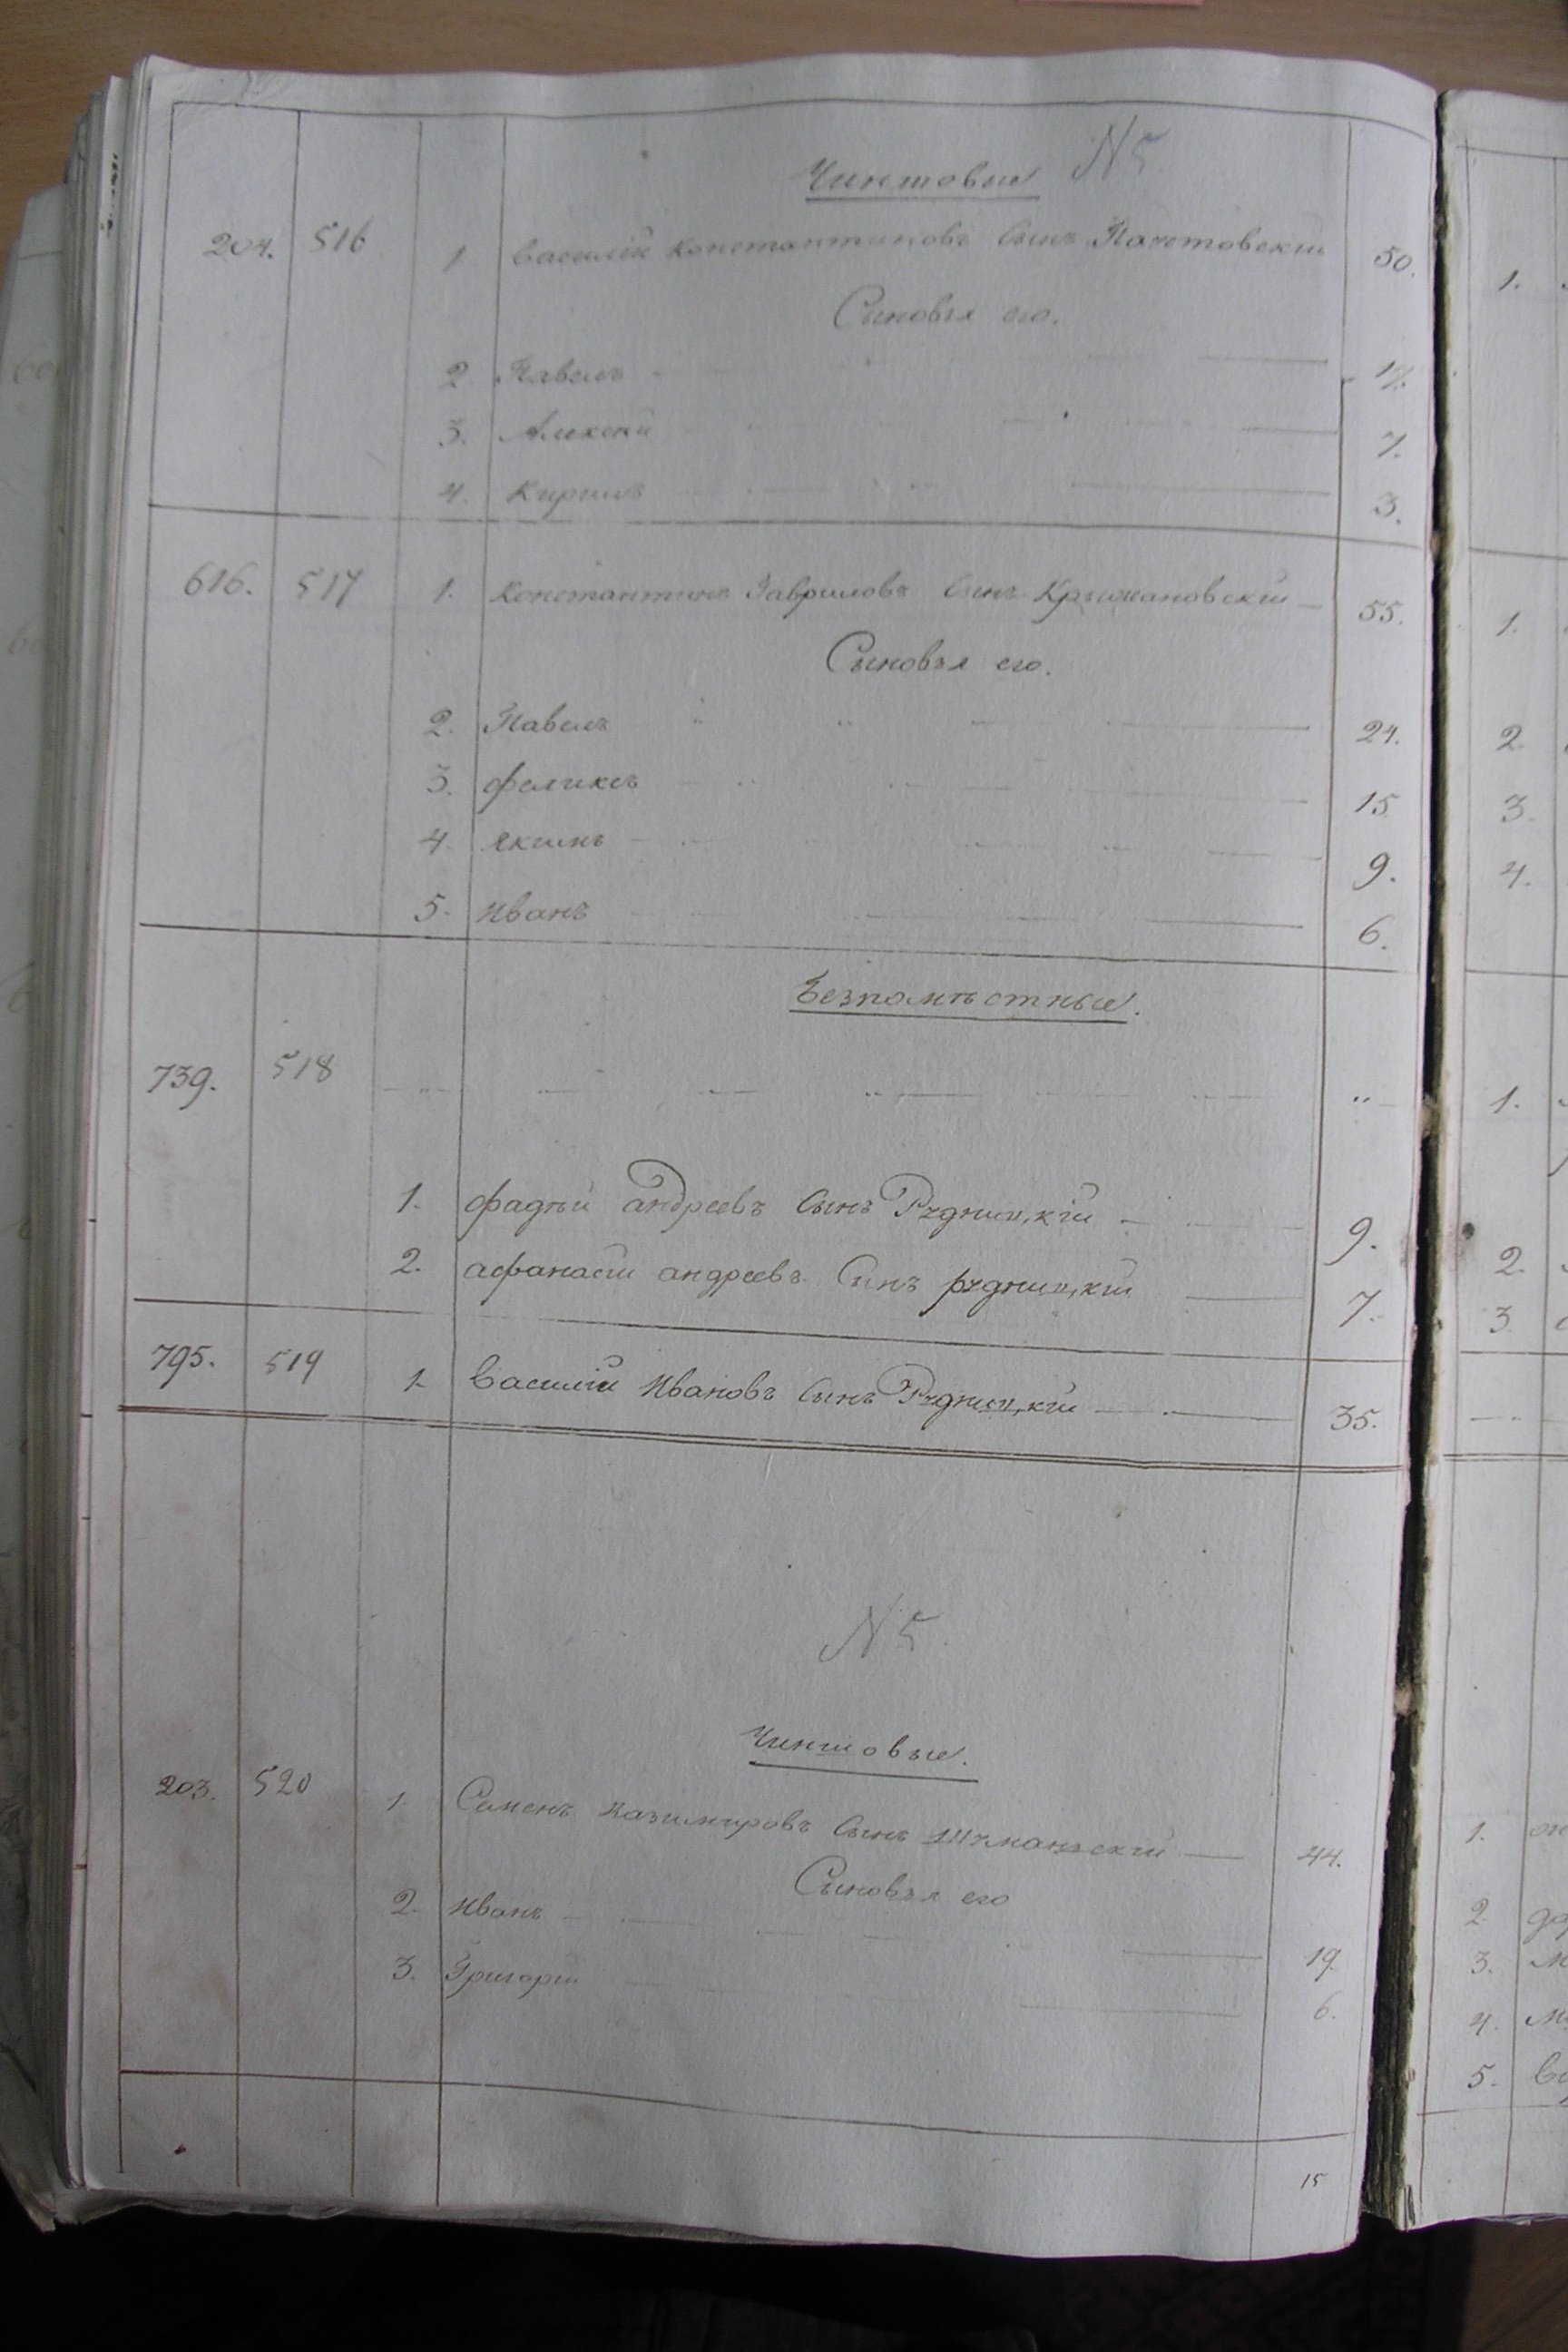 Чиншовые N5
204. 516 1. Василій Константиновъ Сынъ 50.
Сыновья его.
2. Павелъ 17.
3. Алексѣй 7.
4. Кирилъ 3.
616. 517 1. Константинъ Гавриловъ Сынъ Крыжановскій 55.
Сыновья его.
2. Павелъ 24.
3. Феликсъ 15
4. Якимъ 9.
5. Иванъ 6.
Безпомѣстные.
739. 518
1. Фадѣй Андреевъ Сынъ Рудницкій 9.
2. Афанасій Андреевъ Сынъ Рудницкій 7.
795. 519 1. Василій Ивановъ Сынъ Рудницкій 35.
N5.
Чиншовые.
203. 520 1. Семенъ Казимировъ Сынъ Шуманскій 44.
Сыновья его
2. Иванъ 19.
3. Григорій 6.
15
1.
1.
2.
3.
4.
1.
2.
3.
1.
2.
3.
4.
5.